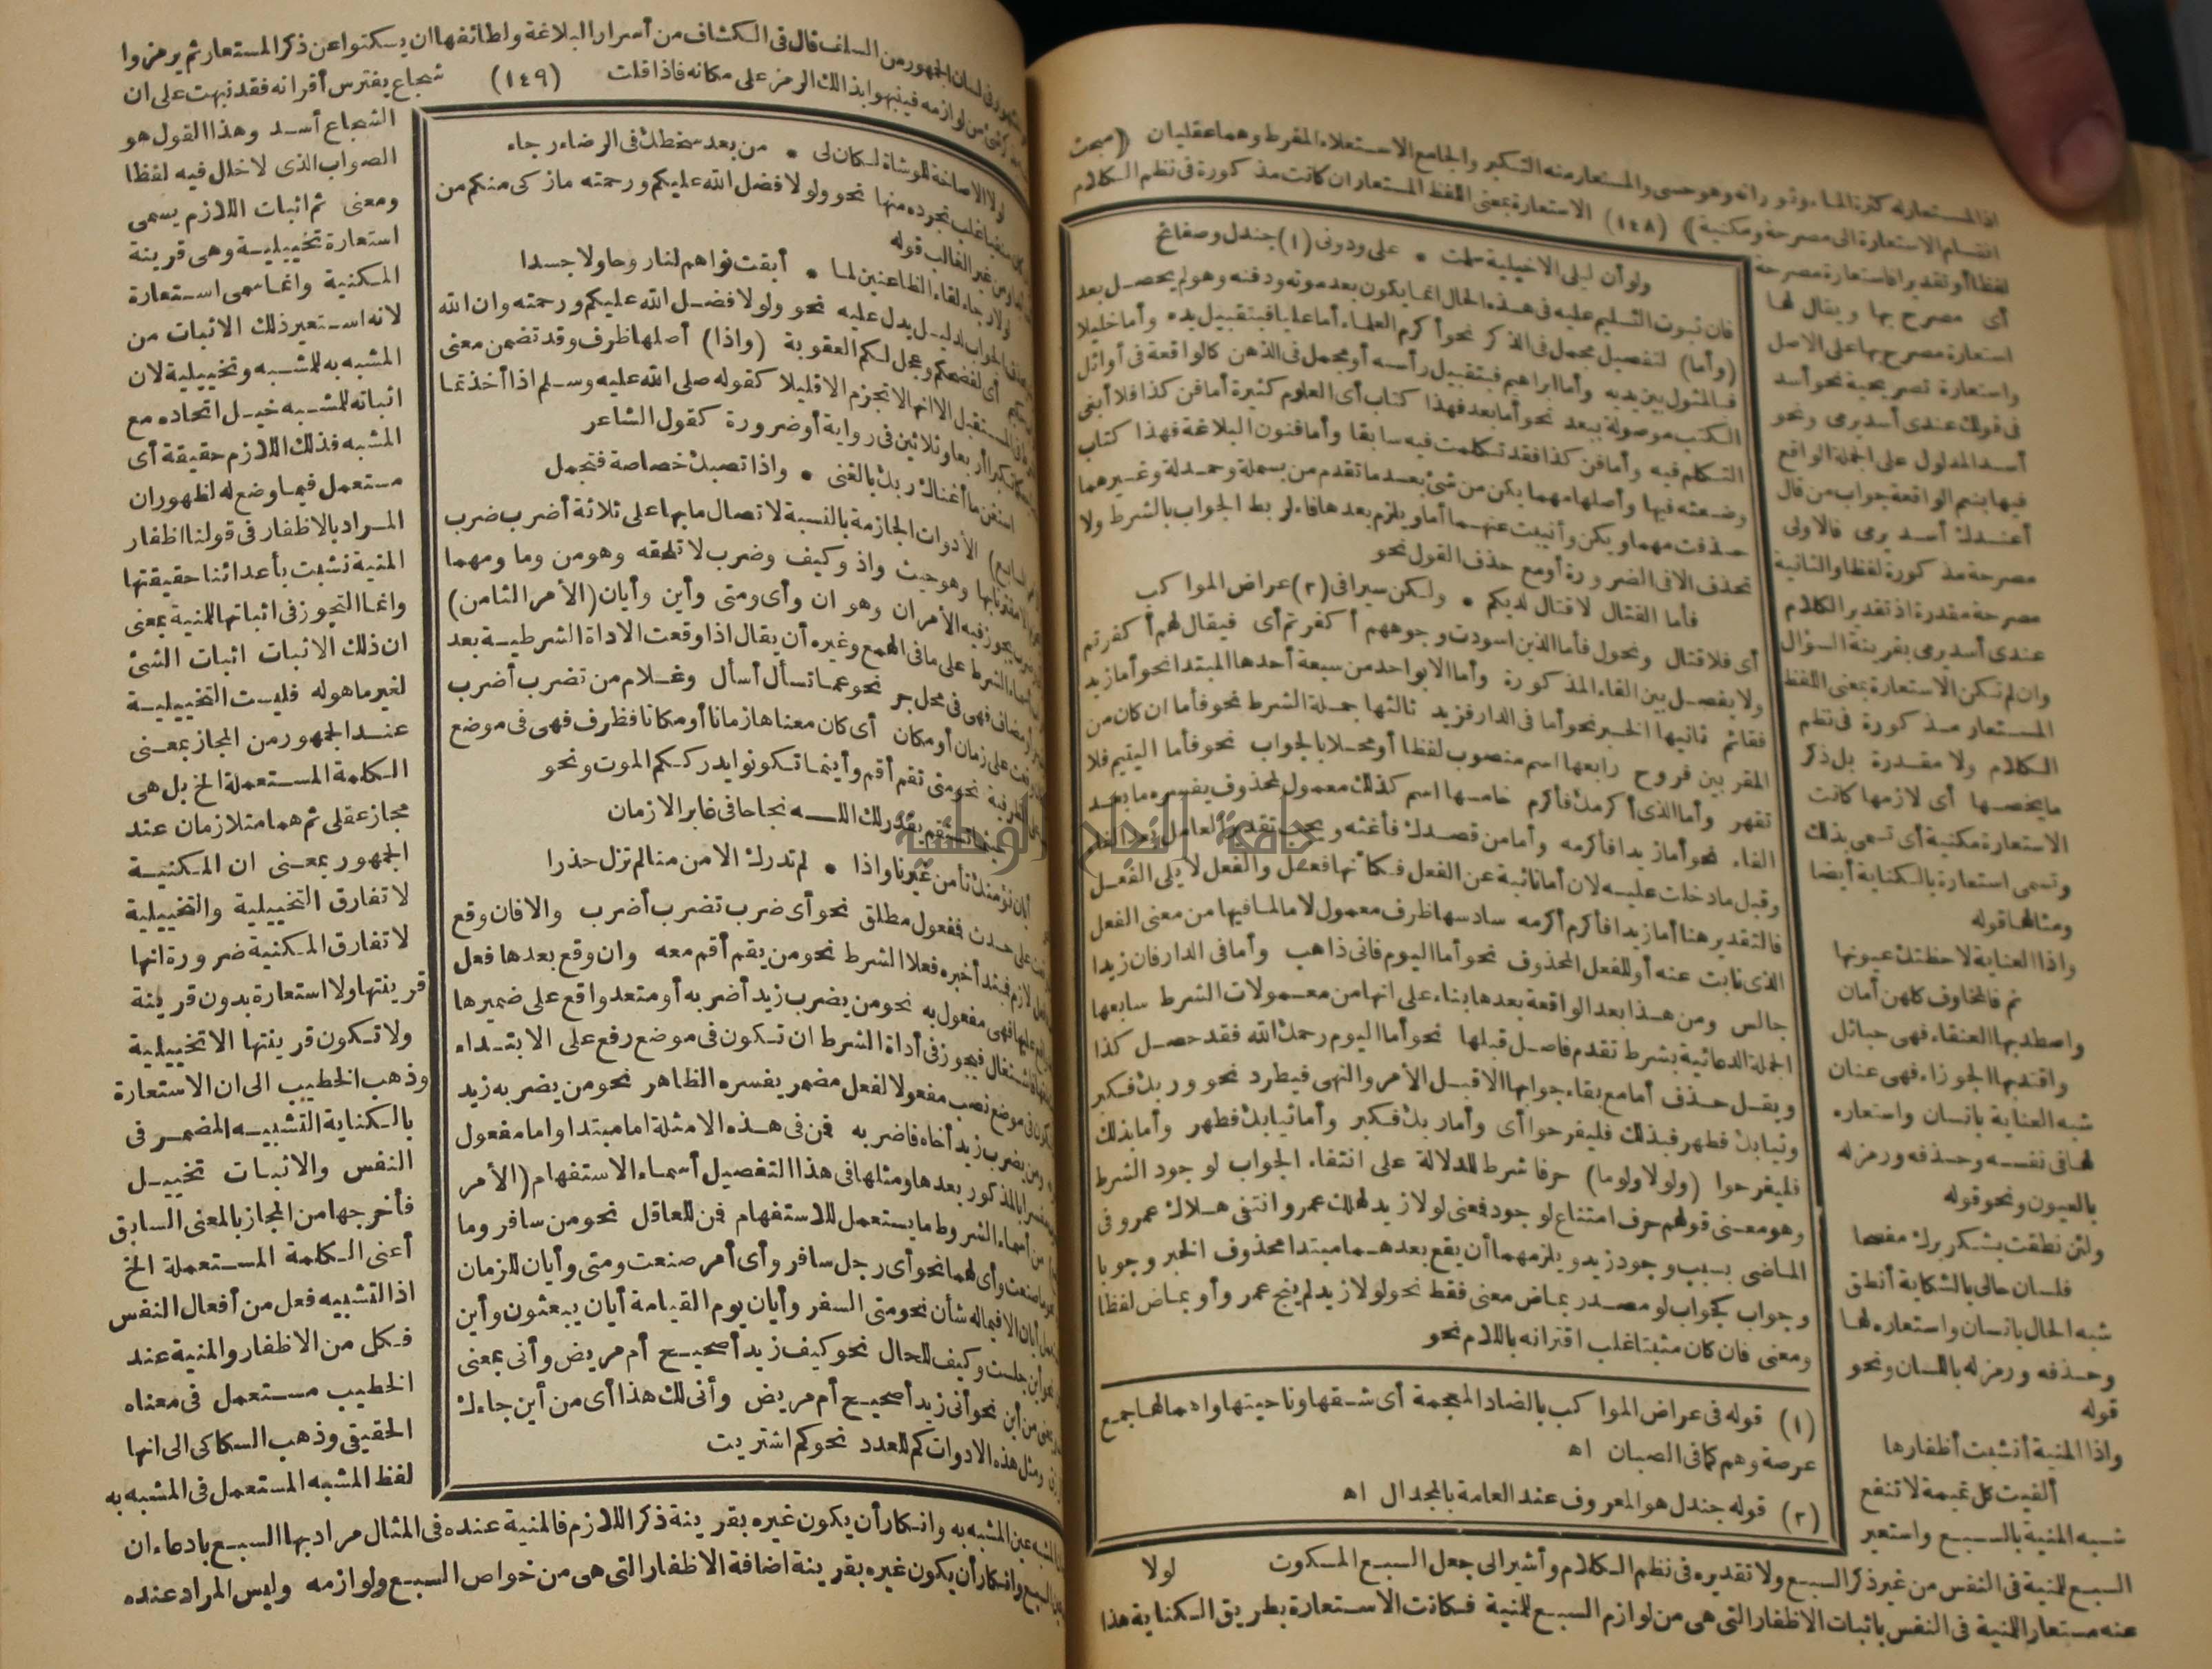 اذ المستعار له كثرة الماء وثورانه وهو حسى والمستعار منه التكبر والجامع الاستعلاء المفرط وهما عقليان (مبحث
انقسام الاستعارة الى مصرحة ومكنية) (١٤٨) الاستعارة بمعنى اللفظ المستعار ان كانت مذكورة فى نظم الكلام
لفظا أو تقديرا فاستعارة مصرحة
أى مصرح بها ويقال لها
استعارة مصرح بها على الاصل
واستعارة تصريحية نحو أسد
فى قولك عندى أسد يرمى ونحو
أسد المدلول على الجملة الواقع
فيها بنعم الواقعة جواب من قال
أعندك أسد يرمى فالاولى
مصرحة مذكورة لفظا والثانية
مصرحة مقدرة اذ تقدير الكلام
عندى أسد يرمى بقرينة السؤال
وان لم تكن الاستعارة بمعنى اللفظ
المستعار مذكورة فى نظم
الكلام ولا مقدرة بل ذكر
ما يخصها أى لازمها كانت
الاستعارة مكنية أى تسمى بذلك
وتسمى استعارة بالكناية أيضا
ومثالها قوله
واذا العناية لاحظتك عيونها
نم فالمخاوف كلهن أمان
واصطد بها العنقاء فهى حبائل
واقتد بها الجوزاء فهى عنان
شبه العناية بانسان واستعاره
لها فى نفسه وحذفه ورمز له
بالعيون ونحو قوله
ولئن نطقت بشكر برك مفصحا
فلسان حالى بالشكاية أنطق
شبه الحال بانسان واستعاره لها
وحذفه ورمز له باللسان ونحو
قوله
واذا المنية أنشبت أظفارها
ألفيت كل تميمة لا تنفع
شبه المنية بالسبع واستعير
السبع للمنية فى النفس من غير ذكر السبع ولا تقديره فى نظم الكلام وأشير الى جعل السبع المسكوت
عنه مستعارا للمنية فى النفس باثبات الاظفار التى هى من لوازم السبع للمنية فكانت الاستعارة بطريق الكناية هذا
ولو أن ليلى الاخيلية سلمت • على ودونى (١) جندل وصفائح
فان ثبوت التسليم عليه فى هذه الحال انما يكون بعد موته ودفنه وهو لم يحصل بعد
(وأما) لتفصيل مجمل فى الذكر نحو أكرم العلماء أما عليا فبتقبيل يده وأما خليلا
فبالمثول بين يديه وأما ابراهيم فبتقبيل رأسه أو مجمل فى الذهن كالواقعة فى أوائل
الكتب موصولة ببعد نحو أما بعد فهذا كتاب أى العلوم كثيرة أما فن كذا فلا أبغى
التكلم فيه وأما فن كذا فقد تكلمت فيه سابقا وأما فنون البلاغة فهذا كتاب
وضعته فيها وأصلها مهما يكن من شئ بعد ما تقدم من بسملة وحمدلة وغيرهما
حذفت مهما ويكن وأنيبت عنهما أما ويلزم بعدها فاء لربط الجواب بالشرط ولا
تحذف الا فى الضرورة أو مع حذف القول نحو
فأما القتال لا قتال لديكم • ولكن سيرا فى (٢) عراض المواكب
أى فلا قتال ونحو فأما الذين اسودت وجوههم أكفرتم أى فيقال لهم أكفرتم
ولا يفصل بين الفاء المذكورة وأما الا بواحد من سبعة أحدها المبتدا نحو أما زيد
فقائم ثانيها الخبر نحو أما فى الدار فزيد ثالثها جملة الشرط نحو فأما ان كان من
المقربين فروح رابعها اسم منصوب لفظا أو محلا بالجواب نحو فأما اليتيم فلا
تقهر وأما الذى أكرمك فأكرم خامسها اسم كذلك معمول لمحذوف يفسره ما بعد
الفاء نحو أما زيدا فأكرمه وأما من قصدك فأغثه ويجب تقدير العامل بعد الفاء
وقبل ما دخلت عليه لان أما نائبة عن الفعل فكأنها فعل والفعل لا يلى الفعل
فالتقدير هنا أما زيدا فأكرم أكرمه سادسها ظرف معمول لاما لما فيها من معنى الفعل
الذى نابت عنه أو للفعل المحذوف نحو أما اليوم فانى ذاهب وأما فى الدار فان زيدا
جالس ومن هذا بعد الواقعة بعدها بناء على انها من معمولات الشرط سابعها
الجملة الدعائية بشرط تقدم فاصل قبلها نحو أما اليوم رحمك الله فقد حصل كذا
ويقل حذف أما مع بقاء جوابها الا قبل الأمر والنهى فيطرد نحو وربك فكبر
وثيابك فطهر فبذلك فليفرحوا أى وأما ربك فكبر وأما ثيابك فطهر وأما بذلك
فليفرحوا (ولولا ولوما) حرفا شرط للدلالة على انتفاء الجواب لوجود الشرط
وهو معنى قولهم حرف امتناع لوجود فمعنى لولا زيد لهلك عمرو انتفى هلاك عمرو فى
الماضى بسبب وجود زيد ويلزمهما أن يقع بعدهما مبتدا محذوف الخبر وجوبا
وجواب كجواب لو مصدر بماض معنى فقط نحو لولا زيد لم ينج عمرو أو بماض لفظا
ومعنى فان كان مثبتا غلب اقترانه باللام نحو
(١) قوله فى عراض المواكب بالضاد المعجمة أى شقها وناحيتها واهمالها جمع
عرصة وهم كما فى الصبان اه
(٢) قوله جندل هو المعروف عند العامة بالمجدال اه
لولا
من السلف قال فى الكشاف من أسرار البلاغة ولطائفها ان يسكتوا عن ذكر المستعار ثم يرمزوا
من لوازمه فينبهوا بذلك الرمز على مكانه فاذا قلت (١٤٩) شجاع يفترس أقرانه فقد نبهت على ان
الشجاع أسد وهذا القول هو
الصواب الذى لا خلل فيه لفظا
ومعنى ثم اثبات اللازم يسمى
استعارة تخييلية وهى قرينة
المكنية وانما سمى استعارة
لانه استعير ذلك الاثبات من
المشبه به للمشبه وتخييلية لان
اثباته للمشبه خيل اتحاده مع
المشبه فذلك اللازم حقيقة أى
مستعمل فيما وضع له لظهور ان
المراد بالاظفار فى قولنا اظفار
المنية نشبت بأعدائنا حقيقتها
وانما التجوز فى اثباتها للمنية بمعنى
ان ذلك الاثبات اثبات الشئ
لغير ما هو له فليست التخييلية
عند الجمهور من المجاز بمعنى
الكلمة المستعملة الخ بل هى
مجاز عقلى ثم هما متلازمان عند
الجمهور بمعنى ان المكنية
لا تفارق التخييلية والتخييلية
لا تفارق المكنية ضرورة انها
قرينتها ولا استعارة بدون قرينة
ولا تكون قرينتها الا تخييلية
وذهب الخطيب الى ان الاستعارة
بالكناية التشبيه المضمر فى
النفس والاثبات تخييل
فأخرجها من المجاز بالمعنى السابق
أعنى الكلمة المستعملة الخ
اذ التشبيه فعل من أفعال النفس
فكل من الاظفار والمنية عند
الخطيب مستعمل فى معناه
الحقيقى وذهب السكاكى الى انها
لفظ المشبه المستعمل فى المشبه به
عين المشبه به وانكار أن يكون غيره بقرينة ذكر اللازم فالمنية عنده فى المثال مراد بها السبع بادعاء ان
السبع وانكار أن يكون غيره بقرينة اضافة الاظفار التى هى من خواص السبع ولوازمه وليس المراد عنده
لولا الاصاخة للوشاة لكان لى • من بعد سخطك فى الرضاء رجاء
منفيا غلب تجرده منها نحو ولولا فضل الله عليكم ورحمته ما زكى منكم من
ومن غير الغالب قوله
لولا رجاء لقاء الظاعنين لما • أبقت نواهم لنا روحا ولا جسدا
الجواب لدليل يدل عليه نحو ولولا فضل الله عليكم ورحمته وان الله
أى لفضحكم وعجل لكم العقوبة (واذا) أصلها ظرف وقد تضمن معنى
المستقبل الا انها لا تجزم الا قليلا كقوله صلى الله عليه وسلم اذا أخذتما
فكبرا أربعا وثلاثين فى رواية أو ضرورة كقول الشاعر
استغن ما أغناك ربك بالغنى • واذا تصبك خصاصة فتجمل
الأدوات الجازمة بالنسبة لاتصال ما بها على ثلاثة أضرب ضرب
وهو حيث واذ وكيف وضرب لا تلحقه وهو من وما ومهما
يجوز فيه الأمران وهو ان وأى ومتى وأين وأيان (الأمر الثامن)
الشرط على ما فى الهمع وغيره أن يقال اذا وقعت الاداة الشرطية بعد
مضاف فهى فى محل جر نحو عما تسأل أسأل وغلام من تضرب أضرب
على زمان أو مكان أى كان معناها زمانا أو مكانا فظرف فهى فى موضع
نحو متى تقم أقم وأينما تكونوا يدرككم الموت ونحو
حيثما تستقم يقدر لك اللـه نجاحا فى غابر الازمان
أيان نؤمنك تأمن غيرنا واذا • لم تدرك الامن منا لم تزل حذرا
على حدث فمفعول مطلق نحو أى ضرب تضرب أضرب والا فان وقع
لازم فمبتدأ خبره فعلا الشرط نحو من يقم أقم معه وان وقع بعدها فعل
عليها فهى مفعول به نحو من يضرب زيد أضربه أو متعد واقع على ضميرها
فاشتغال فيجوز فى أداة الشرط ان تكون فى موضع رفع على الابتداء
فى موضع نصب مفعولا لفعل مضمر يفسره الظاهر نحو من يضربه زيد
ومن يضرب زيد أخاه فاضربه فمن فى هذه الامثلة اما مبتدا واما مفعول
المذكور بعدها ومثلها فى هذا التفصيل أسماء الاستفهام (الأمر
من أسماء الشروط ما يستعمل للاستفهام فمن للعاقل نحو من سافر وما
صنعت وأى لهما نحو أى رجل سافر وأى أمر صنعت ومتى وأيان للزمان
أيان الا فيما له شأن نحو متى السفر وأيان يوم القيامة أيان يبعثون وأين
أين جلست وكيف للحال نحو كيف زيد أصحيح أم مريض وأنى بمعنى
من أين نحو أنى زيد أصحيح أم مريض وأنى لك هذا أى من أين جاءك
ومثل هذه الادوات كم للعدد نحو كم اشتريت
جامعة النجاح الوطنية